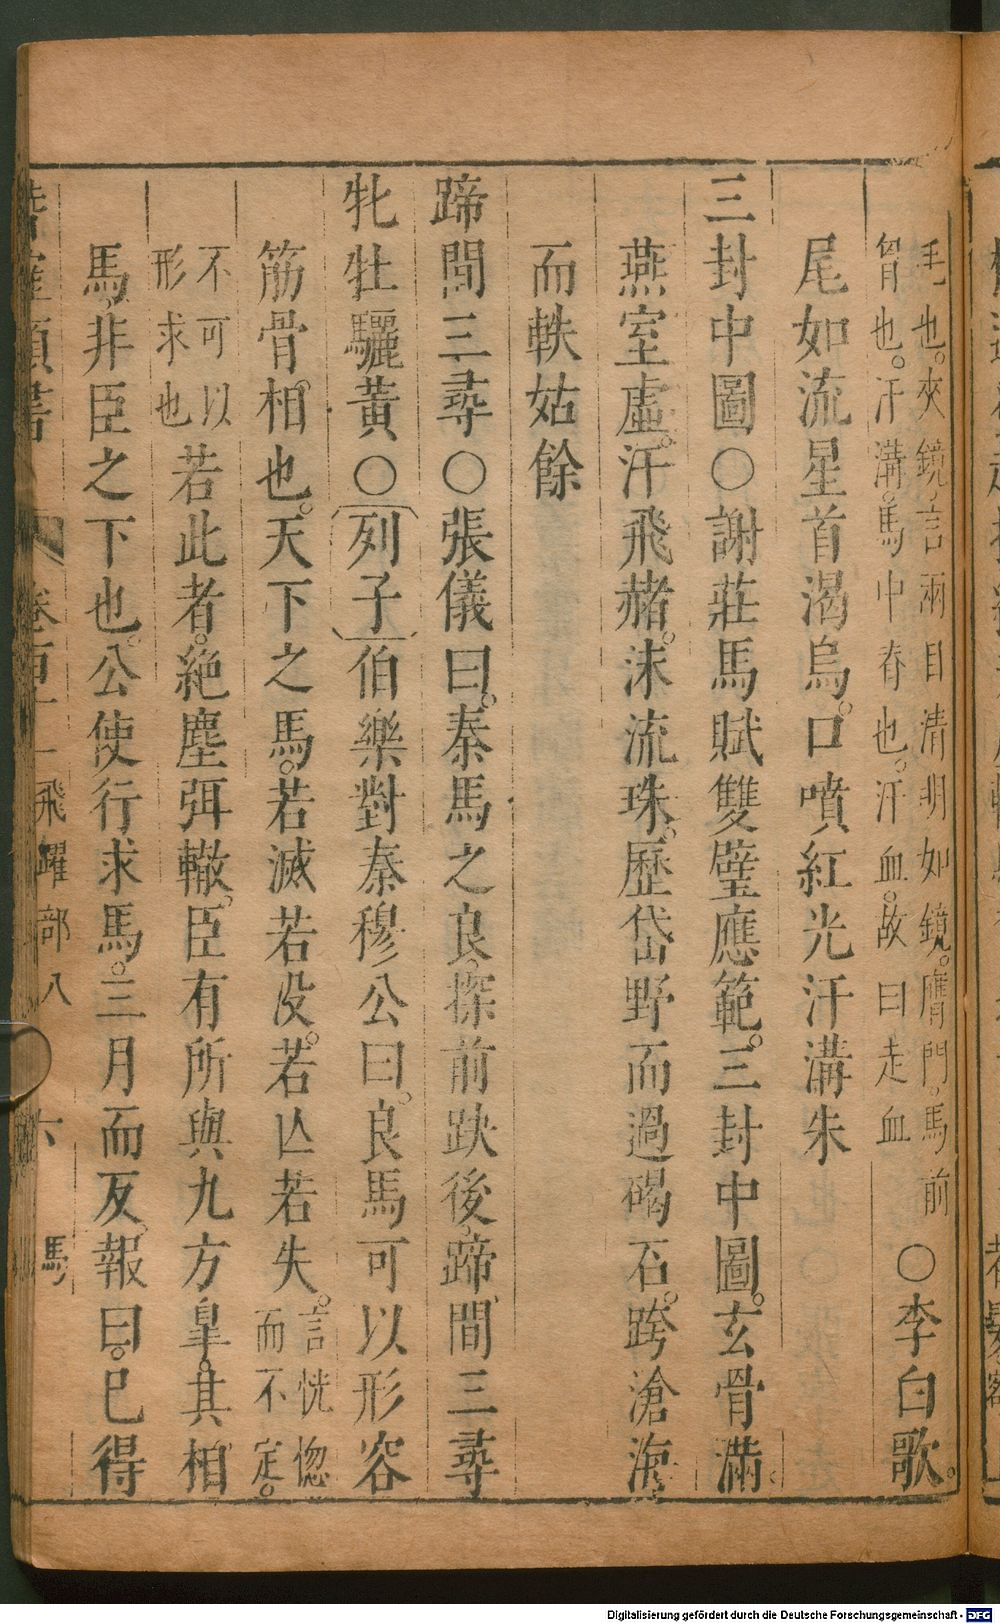 毛也。夾鏡、言兩目清明如鏡。膺門。馬前
胷也。汗溝。馬中脊也。汗血。故曰走血
○李白歌。
尾如流星首渴烏。口噴紅光汗溝朱
三封中圖○謝莊馬賦雙璧應範。三封中圖。玄骨滿。
燕室虛。汗飛赭。沫流珠。歷岱野而過碣石。跨滄海
而軼姑餘
蹄間三尋○張儀曰。秦馬之良。探前趹後。蹄間三尋
牝牡驪黃○列子伯樂對秦穆公曰。良馬可以形容
筋骨。相也。天下之馬。若滅若没。若亾若失。言恍惚
而不定。
不可以
形求也
若此者。絕塵弭轍。臣有所與九方皐。其相
馬。非臣之下也。公使行求馬。三月而反。報曰。已得
飛躍部八
六
馬
Digitalisierung gefördert durch die Deutsche Forschungsgemeinschaft - DFG